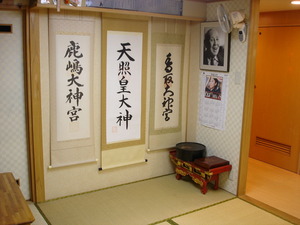 鹿嶋大神宮
天照皇大神
香取大神宮